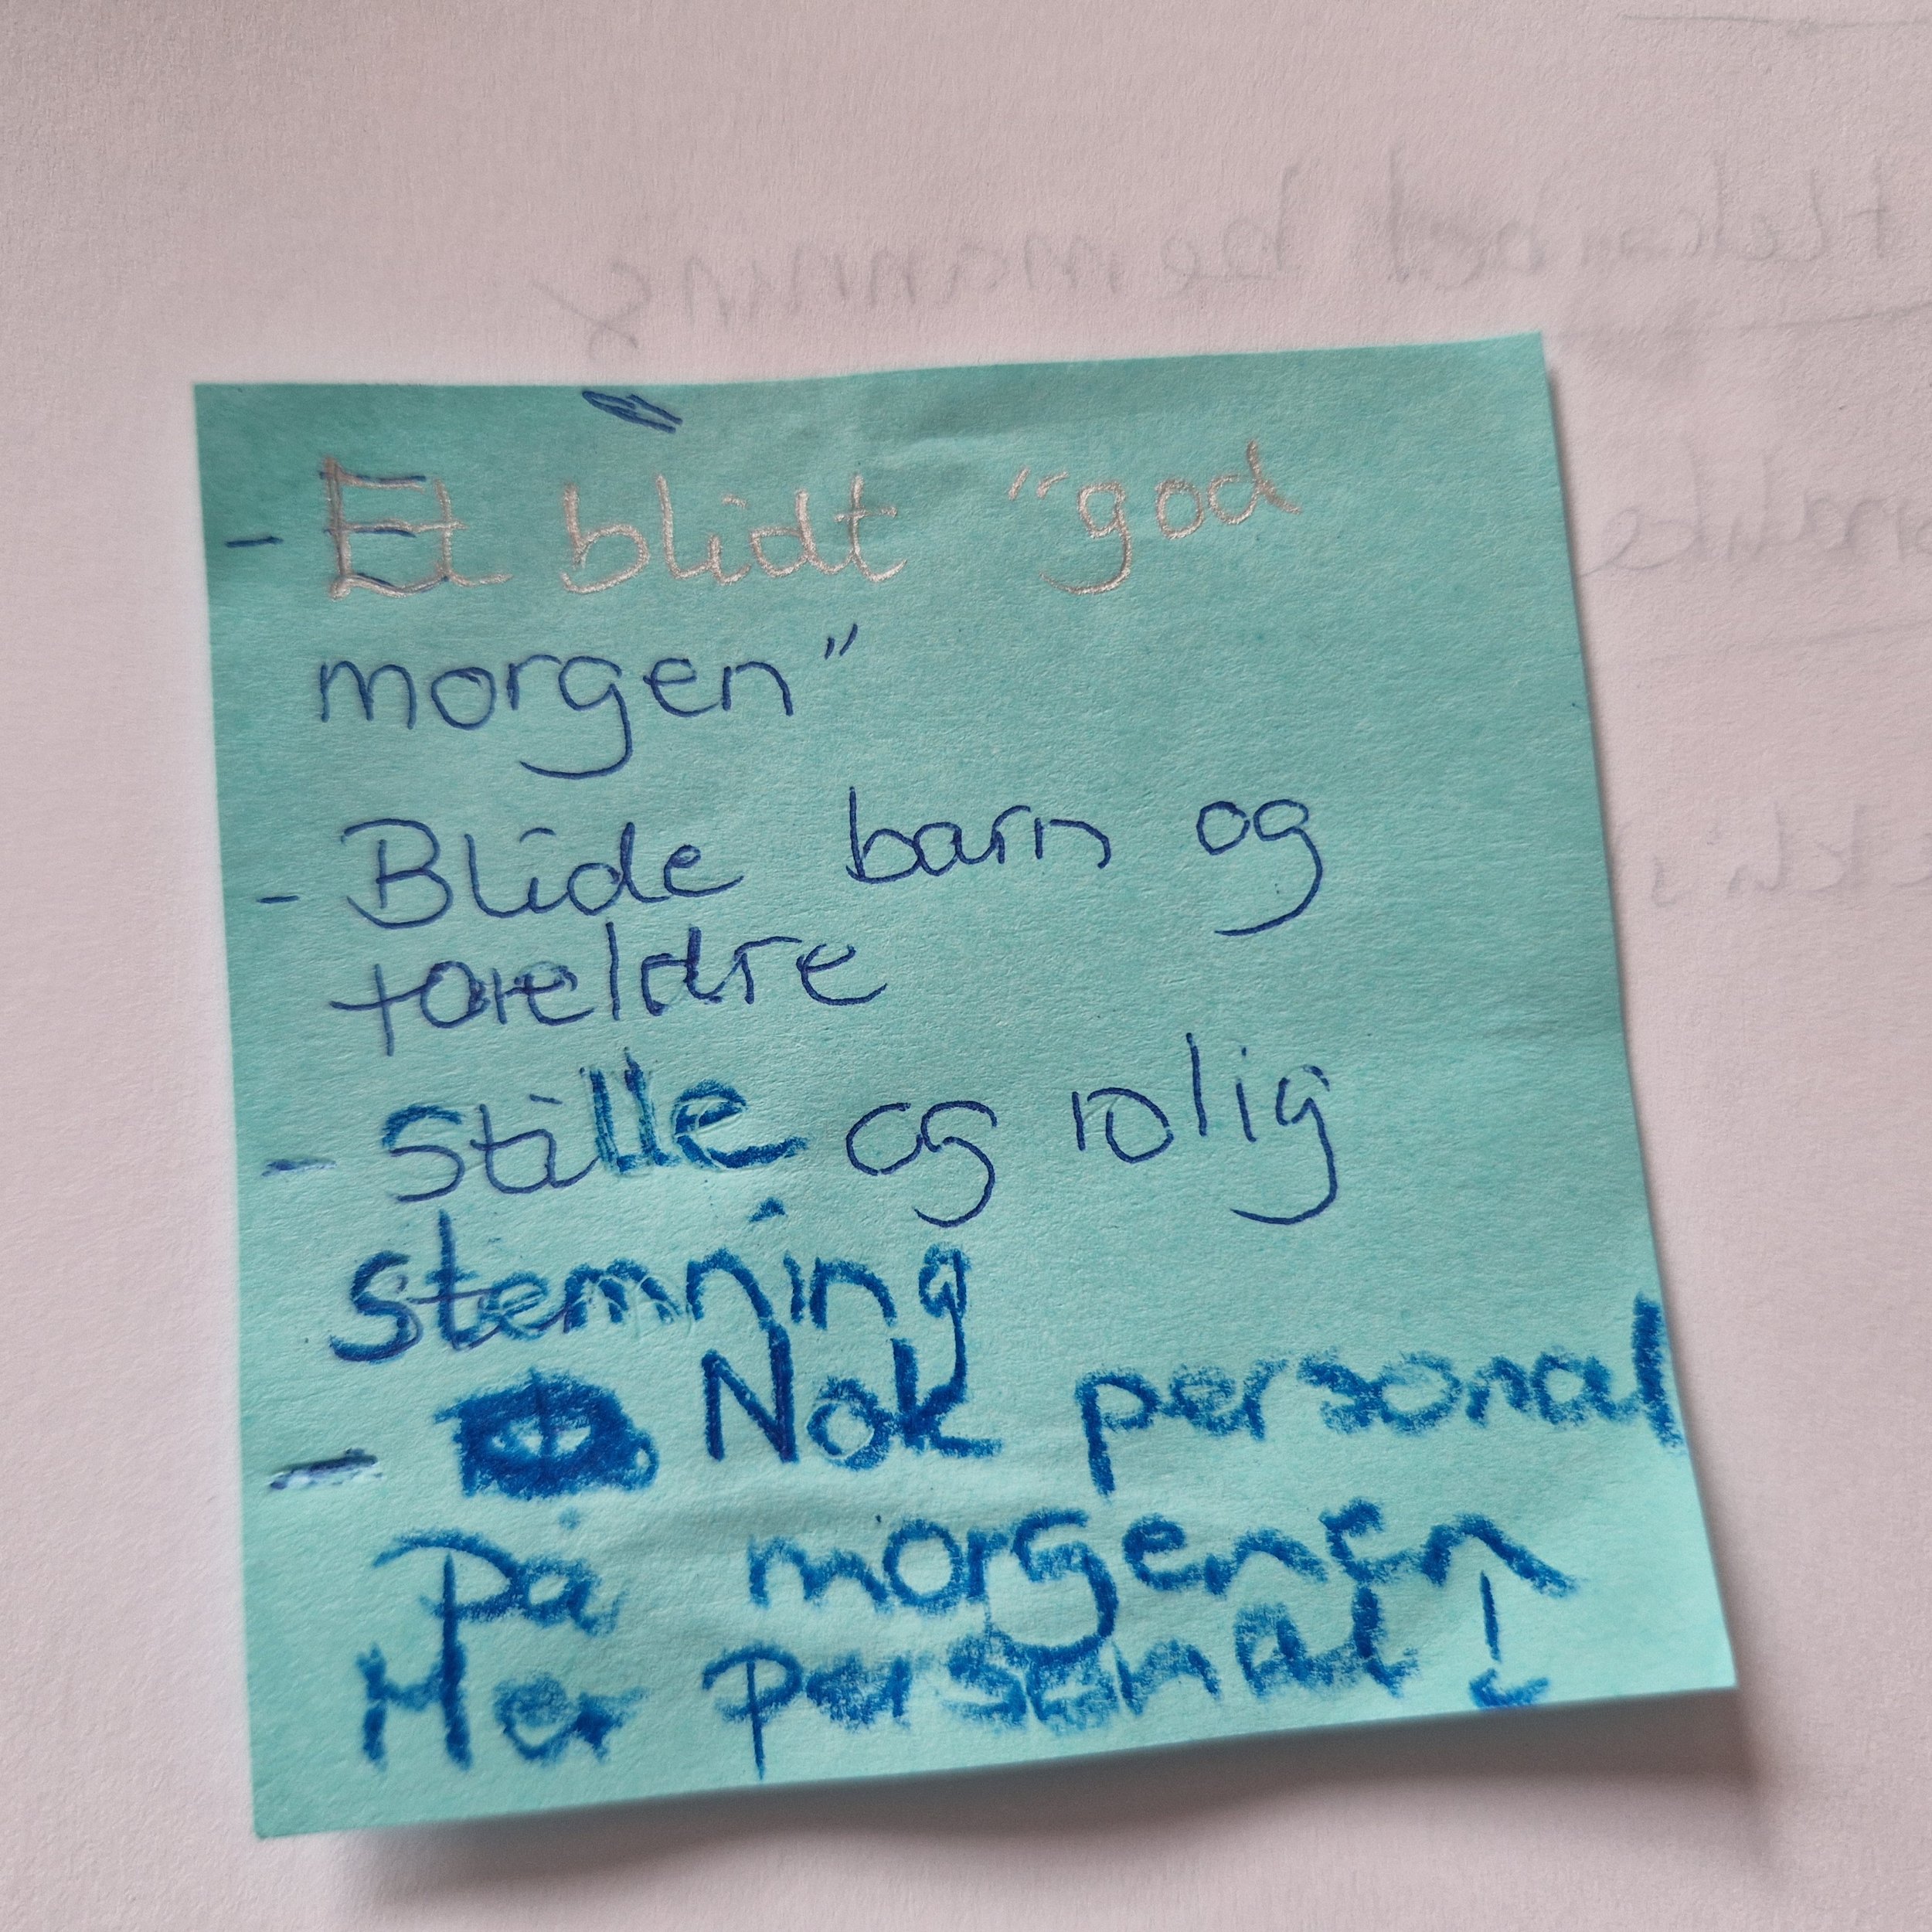 - Et blidt "god
morgen"
- Blide barn og
foreldre
- Stille og rolig
stemning
- Nok personal
på morgenen
Mer personal ↓